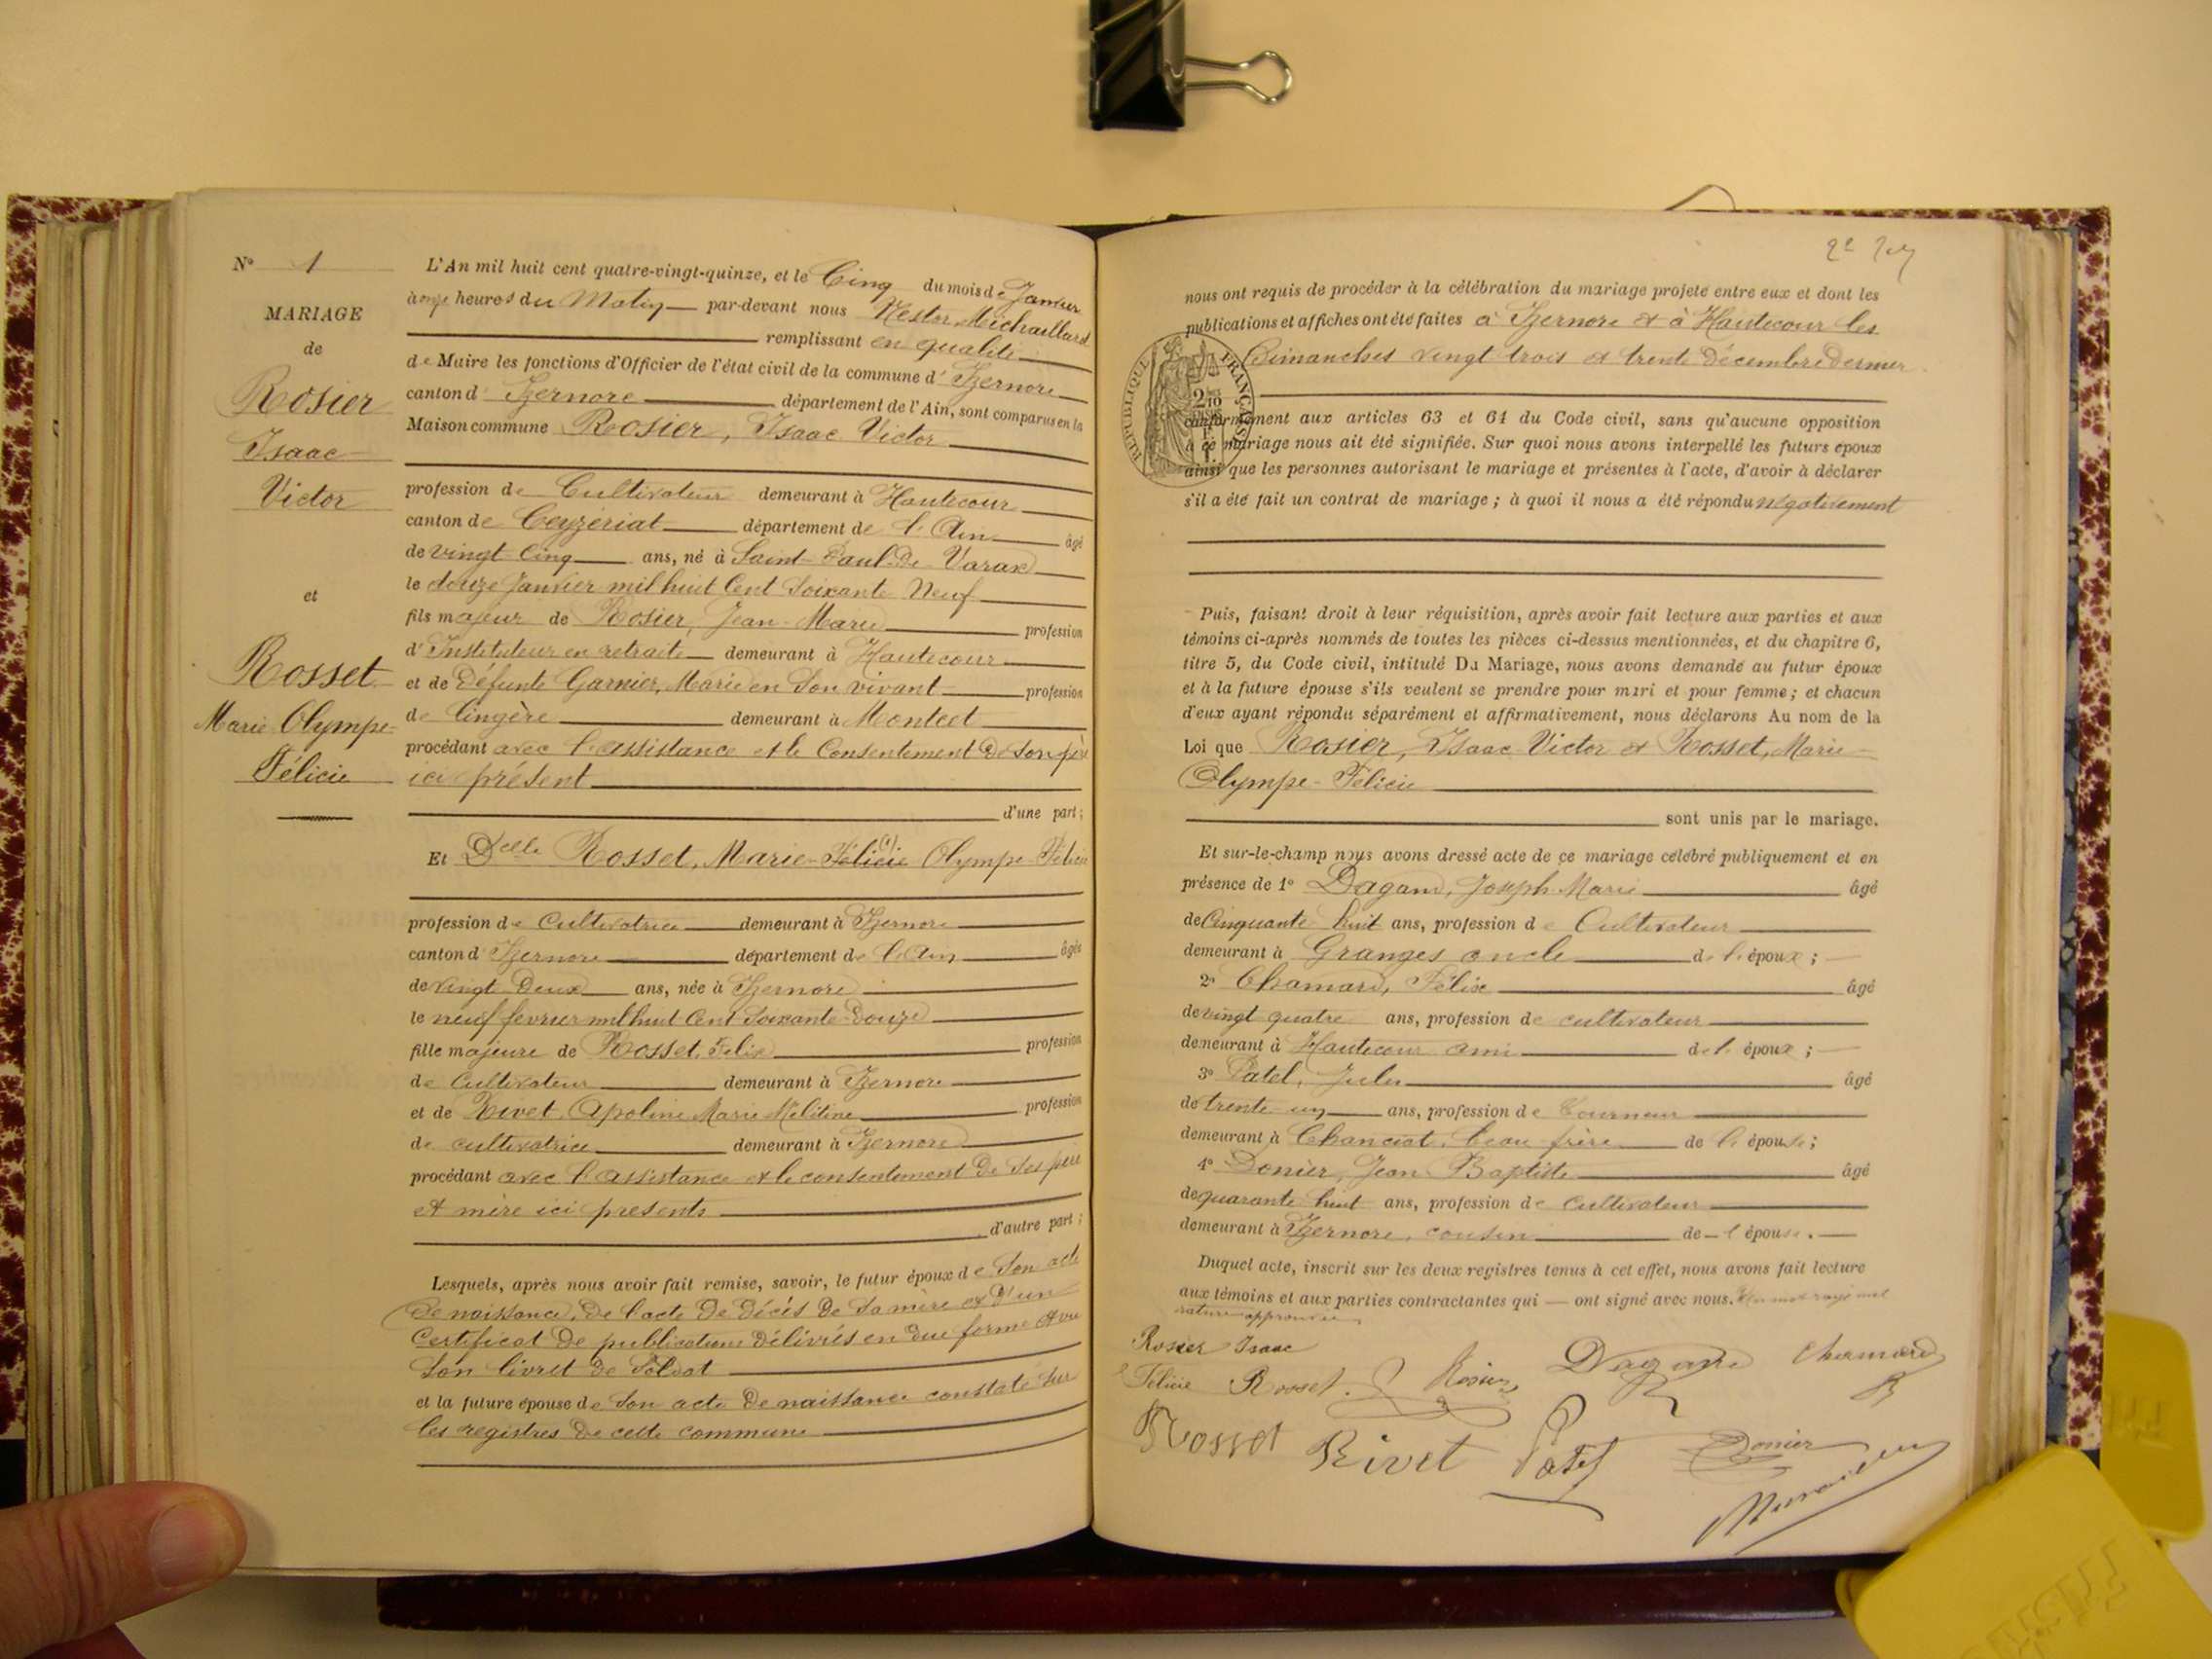 N° 1
MARIAGE
de
Rosier
Isaac
Victor
et
Rosset
Marie Olympe
Félicie
L'An mil huit cent quatre-vingt-quinze, et le Cinq du mois de Janvier
à onze heures du Matin par-devant nous Nestor Michaillard
remplissant en qualité
de Maire les fonctions d'Officier de l'état civil de la commune d' Izernore
canton d' Izernore département de l'Ain, sont comparus en la
Maison commune Rosier, Isaac Victor
profession de Cultivateur demeurant à Hautecour
canton de Ceyzériat département de l'Ain âgé
de vingt cinq ans, né à Saint-Paul-de-Varax
le douze Janvier mil huit Cent Soixante Neuf
fils majeur de Rosier, Jean-Marie profession
d' Instituteur en retraite demeurant à Hautecour
et de Défunte Garnier, Marie en Son vivant profession
de lingère demeurant à Montcet
procédant avec l'assistance et le Consentement de Son père
ici présent
d'une part;
Et Delle Rosset, Marie-Félicie Olympe Félicie
profession de Cultivatrice demeurant à Izernore
canton d' Izernore département de l'Ain âgée
de vingt Deux ans, née à Izernore
le neuf fevrier mil huit Cent Soixante-Douze
fille majeure de Rosset, Felix profession
de Cultivateur demeurant à Izernore
et de Rivet, Apoline Marie Mélitine profession
de cultivatrice demeurant à Izernore
procédant avec l'assistance et le consentement de Ses père
et mère ici présents
d'autre part;
Lesquels, après nous avoir fait remise, savoir, le futur époux de Son acte
de naissance, de l'acte de décès de Sa mère et d'un
Certificat de publications délivrés en due forme et vu
Son livret de Soldat
et la future épouse de Son acte de naissance constaté sur
les registres de cette commune
nous ont requis de procéder à la célébration du mariage projeté entre eux et dont les
publications et affiches ont été faites à Izernore et à Hautecour les
Dimanches vingt trois et trente Décembre Dernier
RÉPUBLIQUE FRANÇAISE
conformément aux articles 63 et 64 du Code civil, sans qu'aucune opposition
à ce mariage nous ait été signifiée. Sur quoi nous avons interpellé les futurs époux
ainsi que les personnes autorisant le mariage et présentes à l'acte, d'avoir à déclarer
s'il a été fait un contrat de mariage; à quoi il nous a été répondu négativement
Puis, faisant droit à leur réquisition, après avoir fait lecture aux parties et aux
témoins ci-après nommés de toutes les pièces ci-dessus mentionnées, et du chapitre 6,
titre 5, du Code civil, intitulé Du Mariage, nous avons demandé au futur époux
et à la future épouse s'ils veulent se prendre pour mari et pour femme; et chacun
d'eux ayant répondu séparément et affirmativement, nous déclarons Au nom de la
Loi que Rosier, Isaac Victor et Rosset, Marie
Olympe-Félicie
sont unis par le mariage.
Et sur-le-champ nous avons dressé acte de ce mariage célébré publiquement et en
présence de 1° Dagand, Joseph Marie âgé
de Cinquante huit ans, profession de Cultivateur
demeurant à Granges oncle de l'époux;
2° Chamard, Félix âgé
de vingt quatre ans, profession de cultivateur
demeurant à Hautecour ami de l'époux;
3° Patel, Jules âgé
de trente un ans, profession de Tourneur
demeurant à Chanciat, beau-frère de l'épouse;
4° Donier, Jean Baptiste âgé
de quarante huit ans, profession de Cultivateur
demeurant à Izernore, cousin de l'épouse.
Duquel acte, inscrit sur les deux registres tenus à cet effet, nous avons fait lecture
aux témoins et aux parties contractantes qui — ont signé avec nous. Un mot rayé nul
rature approuvée
Rosier Isaac
Félicie Rosset. J Rosier Dagand Chamard
Rosset Rivet Patel Donier